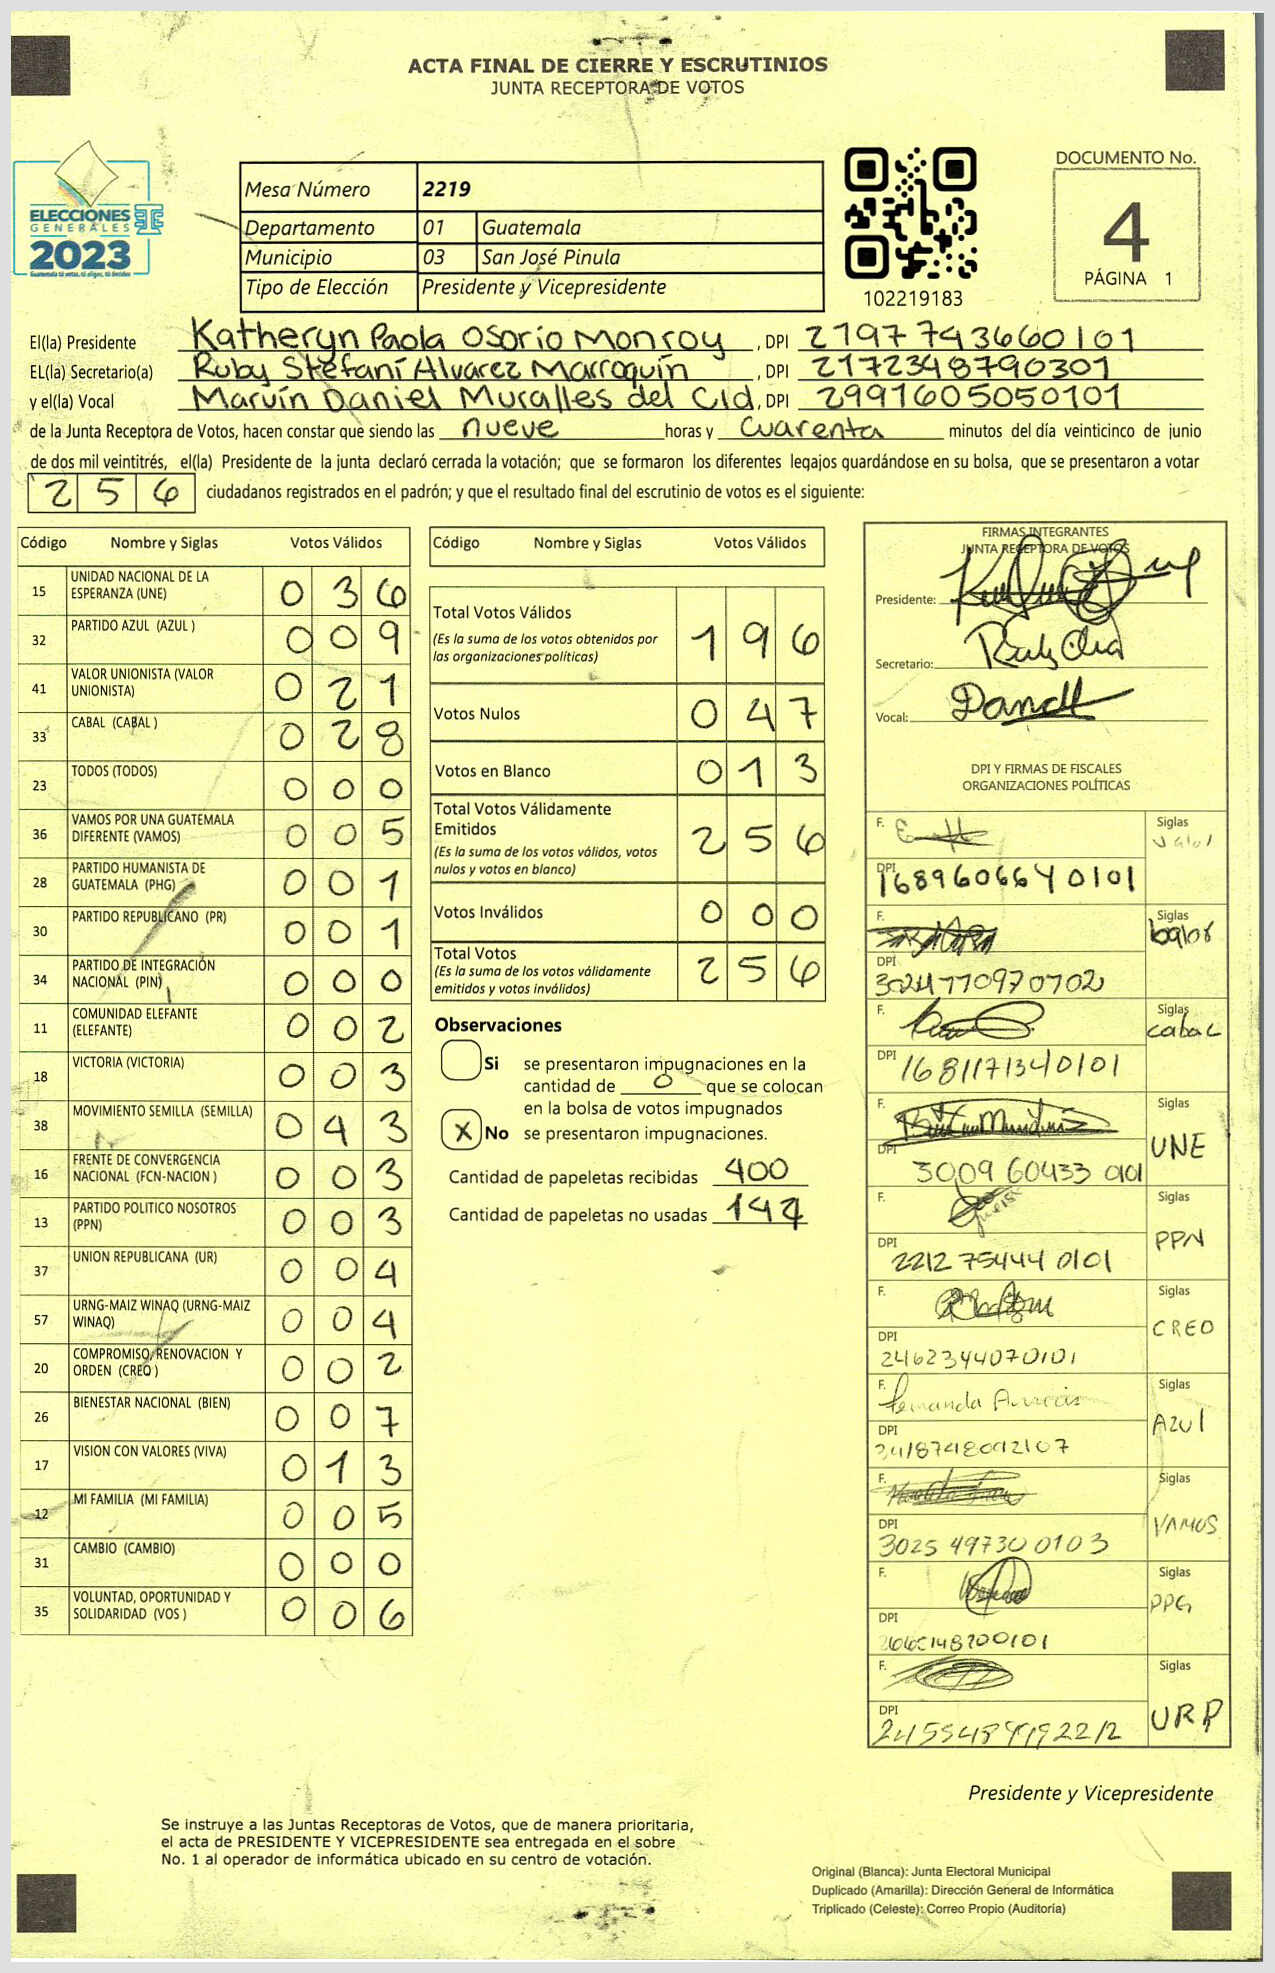 ACTA FINAL DE CIERRE Y ESCRUTINIOS
JUNTA RECEPTORA DE VOTOS
ELECCIONES
GENERALES
2023
Mesa Número 2219
Departamento 01 Guatemala
Municipio 03 San José Pinula
Tipo de Elección Presidente y Vicepresidente
102219183
DOCUMENTO No.
4
PÁGINA 1
El(la) Presidente Katheryn Paola Osorio Monroy, DPI 2797743660101
EL(la) Secretario(a) Ruby Stefaní Alvarez Marroquín, DPI 2172348790301
y el(la) Vocal Marvin Daniel Muralles del Cid, DPI 2991605050101
de la Junta Receptora de Votos, hacen constar que siendo las nueve horas y cuarenta minutos del día veinticinco de junio
de dos mil veintitrés, el(la) Presidente de la junta declaró cerrada la votación; que se formaron los diferentes legajos guardándose en su bolsa, que se presentaron a votar
256 ciudadanos registrados en el padrón; y que el resultado final del escrutinio de votos es el siguiente:
Código Nombre y Siglas Votos Válidos
15 UNIDAD NACIONAL DE LA ESPERANZA (UNE) 036
32 PARTIDO AZUL (AZUL ) 009
41 VALOR UNIONISTA (VALOR UNIONISTA) 021
33 CABAL (CABAL ) 028
23 TODOS (TODOS) 000
36 VAMOS POR UNA GUATEMALA DIFERENTE (VAMOS) 005
28 PARTIDO HUMANISTA DE GUATEMALA (PHG) 001
30 PARTIDO REPUBLICANO (PR) 001
34 PARTIDO DE INTEGRACIÓN NACIONAL (PIN) 000
11 COMUNIDAD ELEFANTE (ELEFANTE) 002
18 VICTORIA (VICTORIA) 003
38 MOVIMIENTO SEMILLA (SEMILLA) 043
16 FRENTE DE CONVERGENCIA NACIONAL (FCN-NACION ) 003
13 PARTIDO POLITICO NOSOTROS (PPN) 003
37 UNION REPUBLICANA (UR) 004
57 URNG-MAIZ WINAQ (URNG-MAIZ WINAQ) 004
20 COMPROMISO, RENOVACION Y ORDEN (CREO ) 002
26 BIENESTAR NACIONAL (BIEN) 007
17 VISION CON VALORES (VIVA) 013
12 MI FAMILIA (MI FAMILIA) 005
31 CAMBIO (CAMBIO) 000
35 VOLUNTAD, OPORTUNIDAD Y SOLIDARIDAD (VOS ) 006
Código Nombre y Siglas Votos Válidos
Total Votos Válidos
(Es la suma de los votos obtenidos por
las organizaciones políticas) 196
Votos Nulos 047
Votos en Blanco 013
Total Votos Válidamente
Emitidos
(Es la suma de los votos válidos, votos
nulos y votos en blanco) 256
Votos Inválidos 000
Total Votos
(Es la suma de los votos válidamente
emitidos y votos inválidos) 256
Observaciones
Si se presentaron impugnaciones en la
cantidad de 0 que se colocan
en la bolsa de votos impugnados
X No se presentaron impugnaciones.
Cantidad de papeletas recibidas 400
Cantidad de papeletas no usadas 144
FIRMAS INTEGRANTES
JUNTA RECEPTORA DE VOTOS
Presidente:
Secretario:
Vocal:
DPI Y FIRMAS DE FISCALES
ORGANIZACIONES POLÍTICAS
F. Siglas Valor
DPI 1689606640101
F. Siglas
DPI 3024770970702
F. Siglas cabal
DPI 1681171340101
F. Siglas UNE
DPI 3009 60433 0101
F. Siglas PPN
DPI 2212 75444 0101
F. Siglas CREO
DPI 2462344070101
F. Siglas Azul
DPI
F. Siglas VAMOS
DPI 3025 49730 0103
F. Siglas PPG
DPI
F. Siglas URP
DPI
Presidente y Vicepresidente
Se instruye a las Juntas Receptoras de Votos, que de manera prioritaria,
el acta de PRESIDENTE Y VICEPRESIDENTE sea entregada en el sobre
No. 1 al operador de informática ubicado en su centro de votación.
Original (Blanca): Junta Electoral Municipal
Duplicado (Amarilla): Dirección General de Informática
Triplicado (Celeste): Correo Propio (Auditoría)